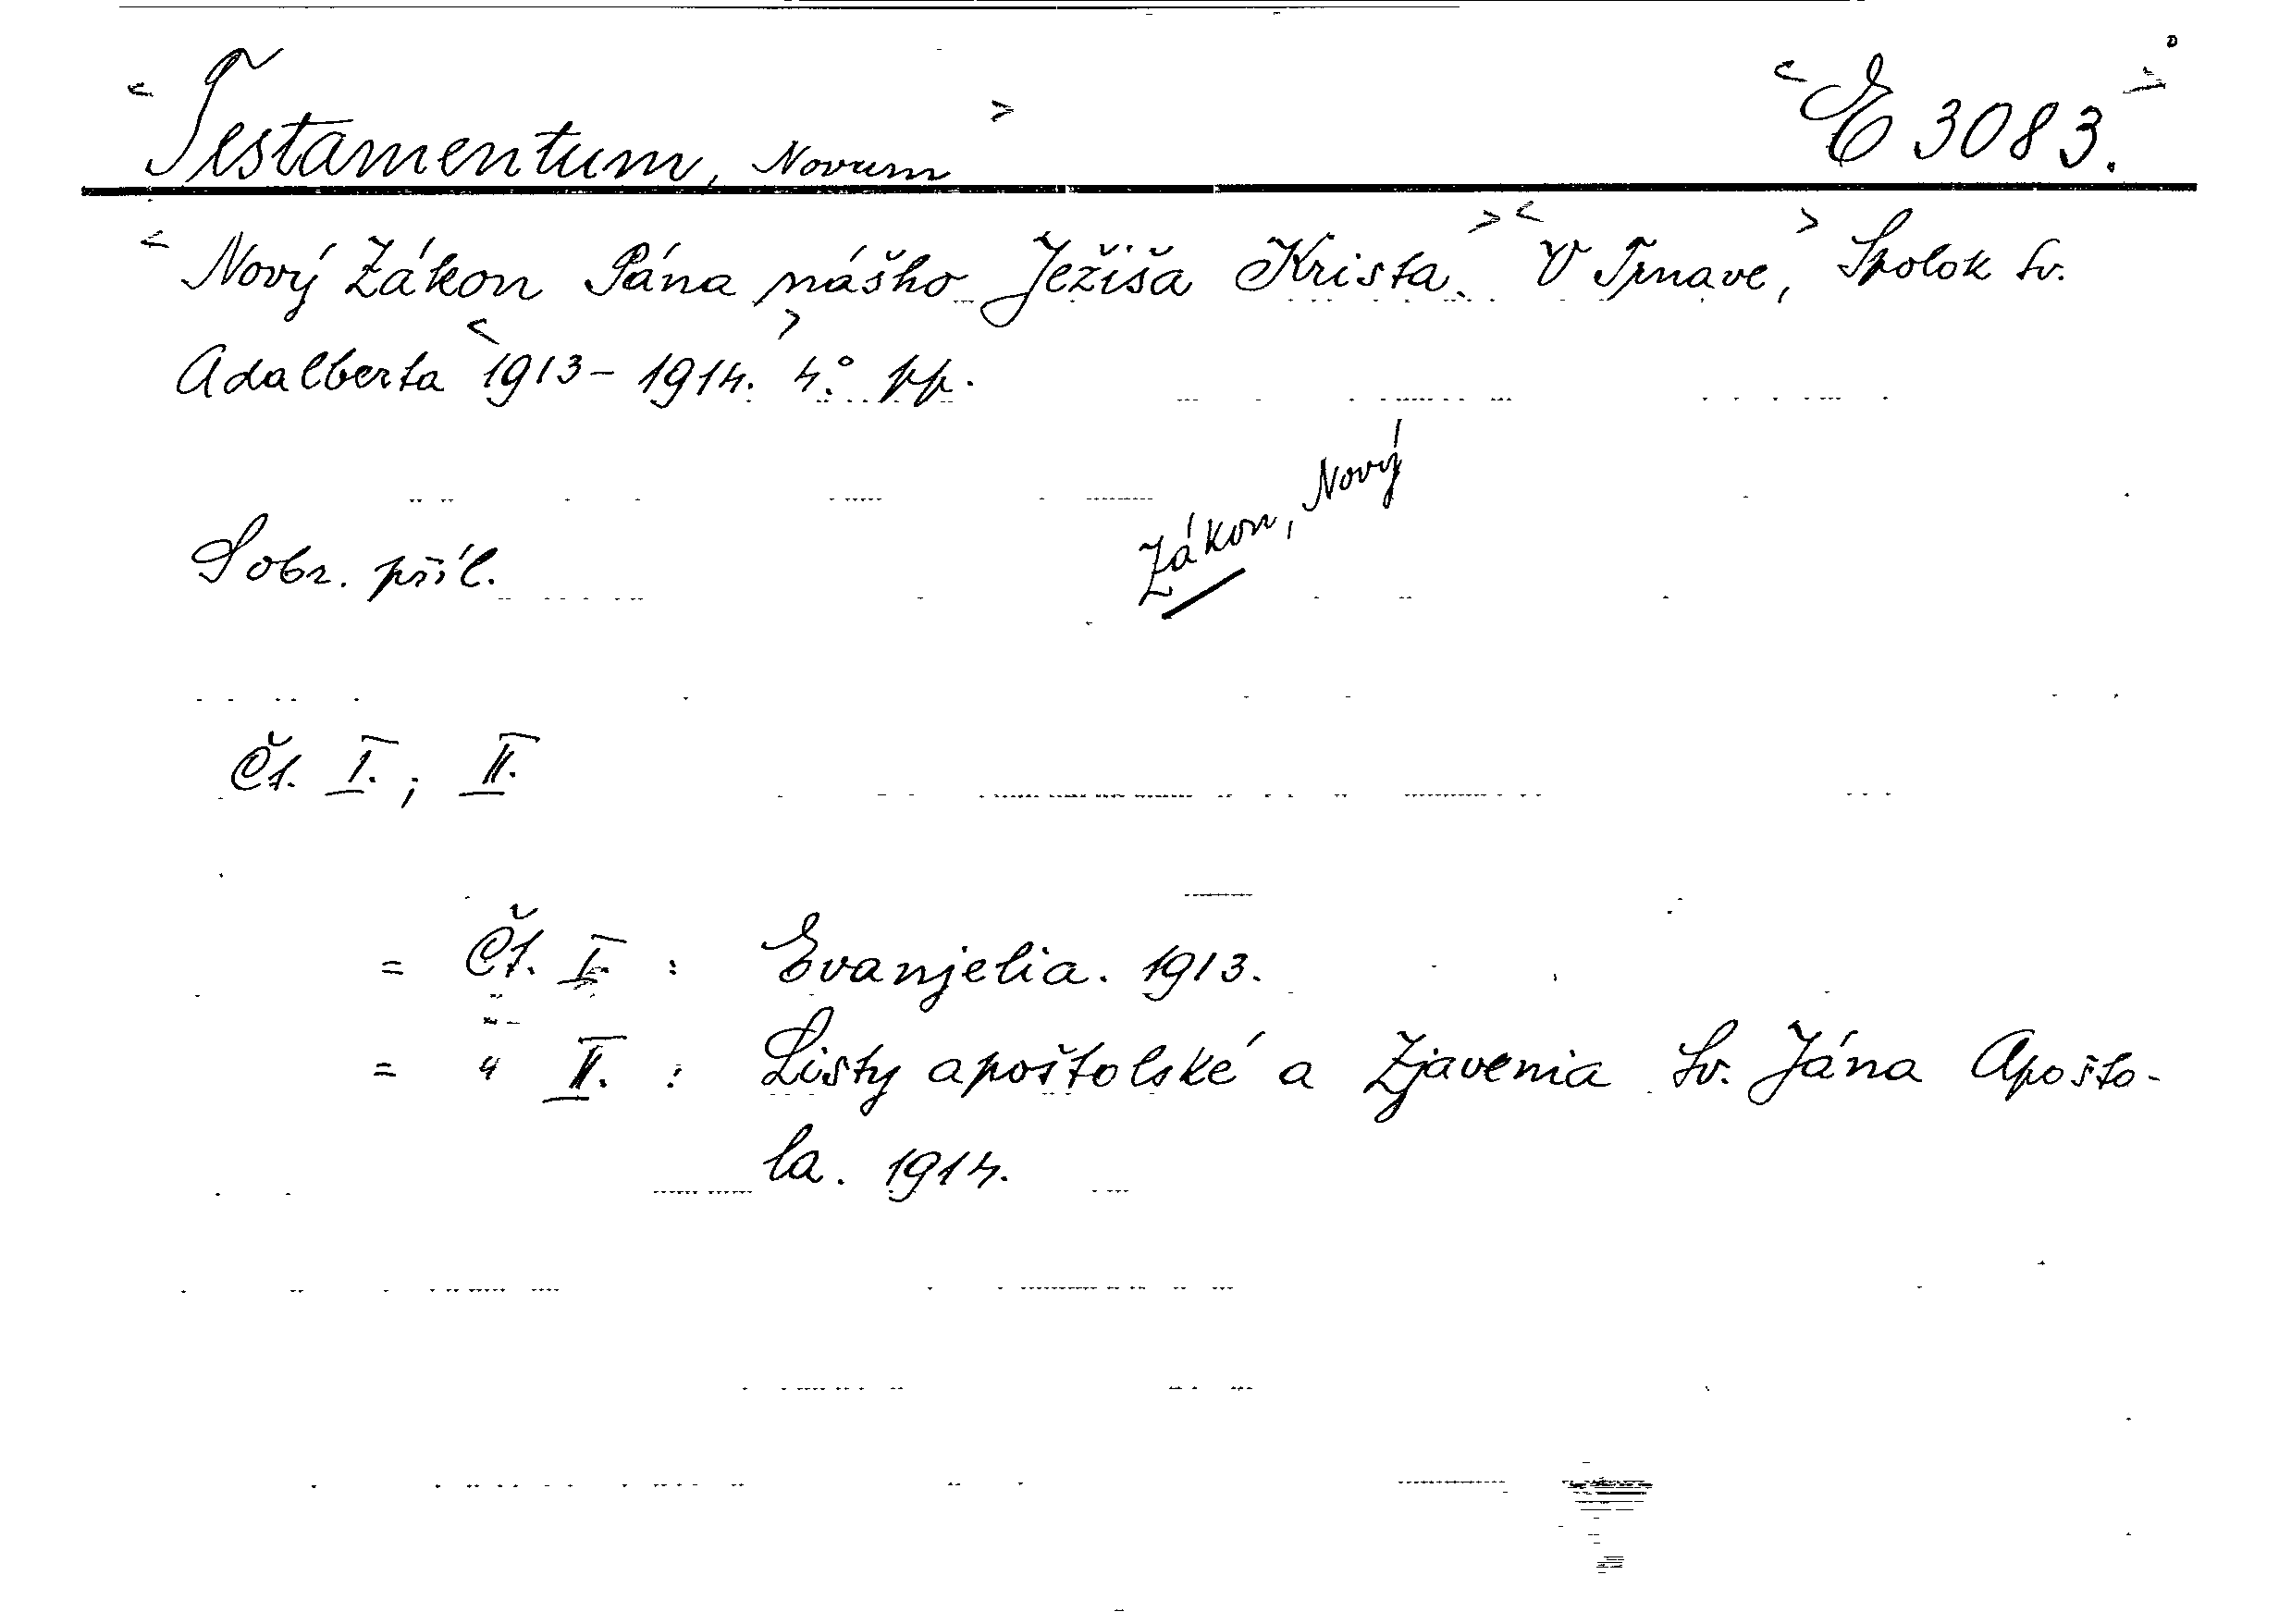 < Testamentum, Novum > < E 3083. >
< Nový Zákon Pána nášho Ježiša Krista. > < V Trnave, > Spolok sv.
Adalberta < 1913-1914. > 4.° pp.
Zákon, Nový
S obr. příl.
Čt. I.; II.
= Čt. I. : Evanjelia. 1913.
= " II. : Listy apoštolské a Zjavenia sv. Jána Apošto-
la. 1914.